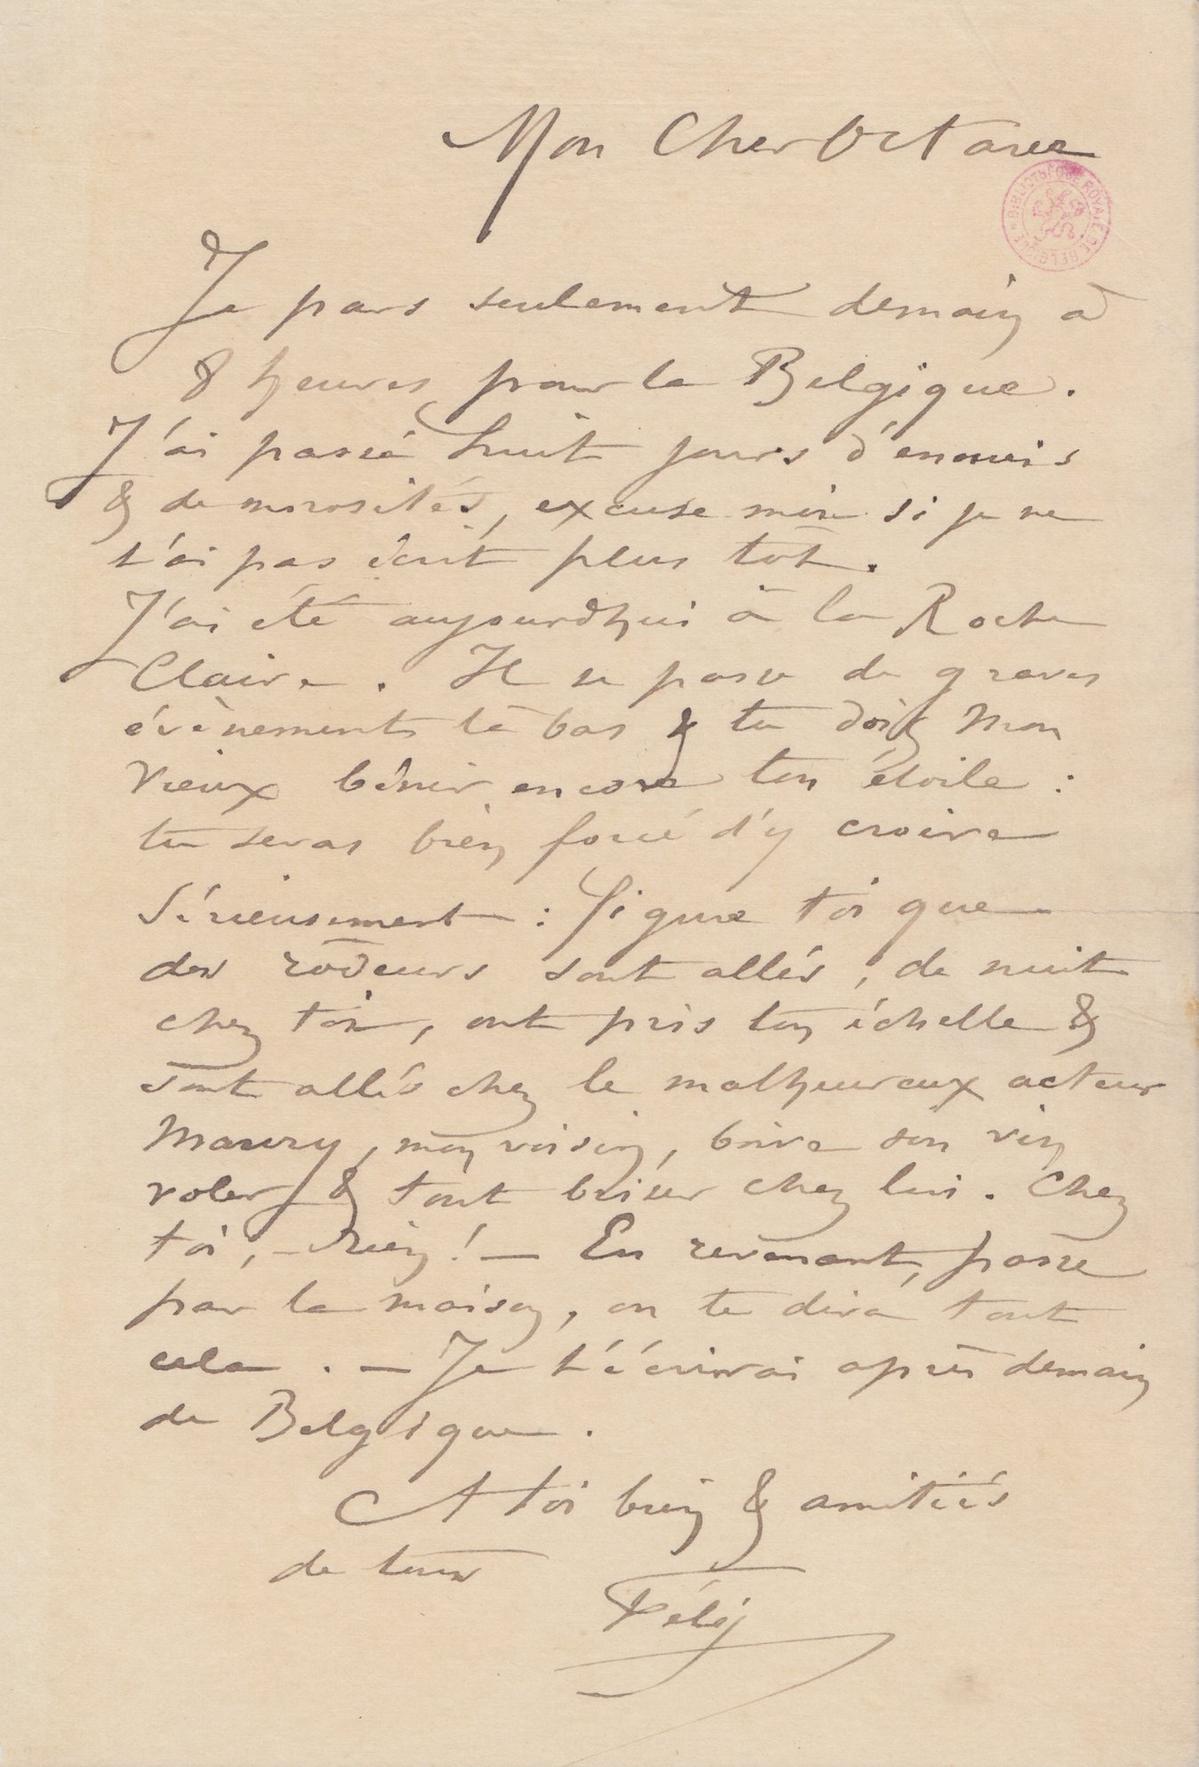 Mon Cher Octave
BIBLIOTHÈQUE ROYALE DE BELGIQUE
Je pars seulement demain à
8 heures pour la Belgique.
J'ai passé huit jours d'ennuis
& de morosités, excuse moi si je ne
t'ai pas écrit plus tôt.
J'ai été aujourdhui à la Roche
Claire. Il se passe de graves
évènements là bas & tu dois mon
vieux bénir encore ton étoile :
tu seras bien forcé d'y croire
Sérieusement : figure toi que
des rôdeurs sont allés, de nuit
chez toi, ont pris ton échelle &
sont allés chez le malheureux acteur
Maury, mon voisin, boire son vin
voler & tout briser chez lui. Chez
toi, – Rien ! – En revenant, passe
par la maison, on te dira tout
cela. – Je t'écrirai après demain
de Belgique.
A toi bien & amitiés
de tous
Fély